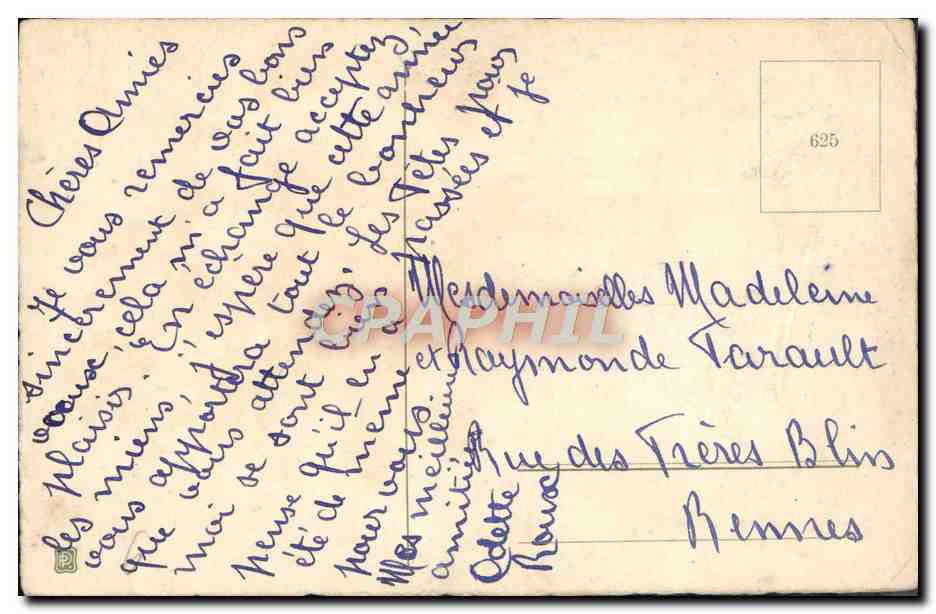 Chères Amies
Je vous remercies
sincèrement de vos bons
voeux, cela m'a fait bien
plaisir. En échange acceptez
les miens, j'espère que cette année
vous apportera tout le bonheur
que vous attendez. Les Fêtes pour
moi se sont passées et je
pense qu'il en a
été de même
pour vous.
Mes meilleures
amitiés
Odette
Roux
625
Mesdemoiselles Madeleine
et Raymonde Tarault
Rue des Frères Blin
Rennes
CPAPHIL